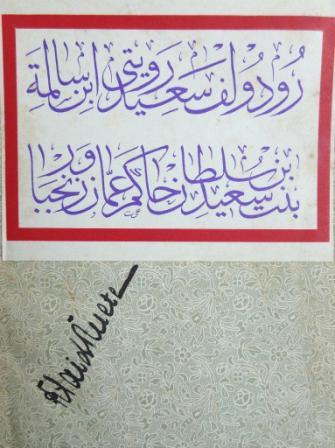 رُودُولف سَعِيد رويتي ابن سالمة
بنت سعيد بن سُلطان حاكم عُمان وزنجبار
R Said Ruete